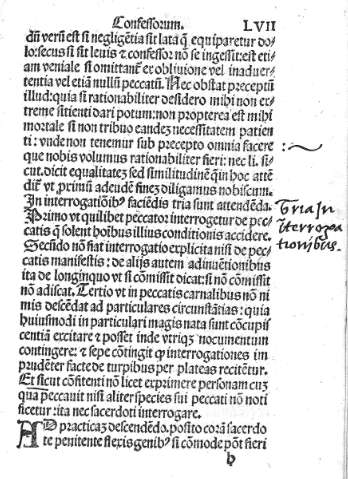 Confessorum. LVII
dū verū est si negligētia sit lata q̄ equiparetur do-
lo: secus si sit leuis & confessor nō se ingessit: est eti-
am veniale si omittant̄ ex obliuione vel inaduer-
tentia vel etiā nullū peccatū. Nec obstat p̄ceptū
illud: quia si rationabiliter desidero mihi non ex-
treme sitienti dari potum: non ꝓpterea est mihi
mortale si non tribuo eandez necessitatem patien
ti: vnde non tenemur sub p̄cepto omnia facere
que nobis volumus rationabiliter fieri: nec li. si-
cut. dicit equalitatez sed similitudinē qꝛ in hoc attē
dit̄ vt ꝓximū ad eundē finez diligamus nobiscum.
In interrogatiōibꝰ faciēdis tria sunt attendēda.
Tria In
Primo vt quilibet peccator interrogetur de pec-
iterroga
catis q̄ solent hoībus illius conditionis accidere.
tionibus.
Secūdo nō fiat interrogatio explicita nisi de pec-
catis manifestis: de alijs autem adinuētionibus
ita de longinquo vt si cōmisit dicat: si nō cōmisit
nō adiscat. Tertio vt in peccatis carnalibus nō ni
mis descēdat ad particulares circunstātias: quia
huiusmodi in particulari magis nata sunt cōcupis
centiā excitare & posset inde vtriqꝫ nocumentum
contingere: & sepe cōtingit ꝙ interrogationes im
prudēter facte de turpibus per plateas recitētur.
Et sicut cōfitenti nō licet exprimere personam cuz
qua peccauit nisi aliter species sui peccati nō noti
ficetur: ita nec sacerdoti interrogare.
AD practicaz descendēdo. posito corā sacerdo
te penitente flexis genibꝰ si cōmode pōt fieri
h